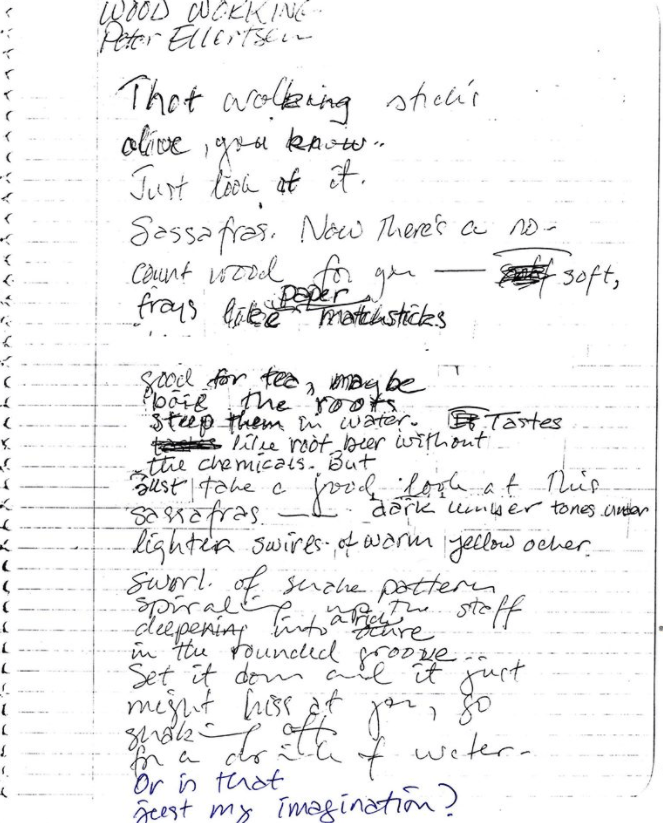 WOOD WORKING
Peter Ellertsen
That walking stick's
alive, you know.
Just look at it.
Sassafras. Now there's a no-
count wood for you — soft,
frays like paper matchsticks
good for tea, maybe
boil the roots
steep them in water. Tastes
like root beer without
the chemicals. But
just take a good look at this
sassafras — dark umber tones under
lighter swirls of warm yellow ocher.
Swirl of snake pattern
spiraling up the staff
deepening into
in the rounded groove
Set it down and it just
might hiss at you, go
snaking off
for a drink of water.
Or is that
just my imagination?